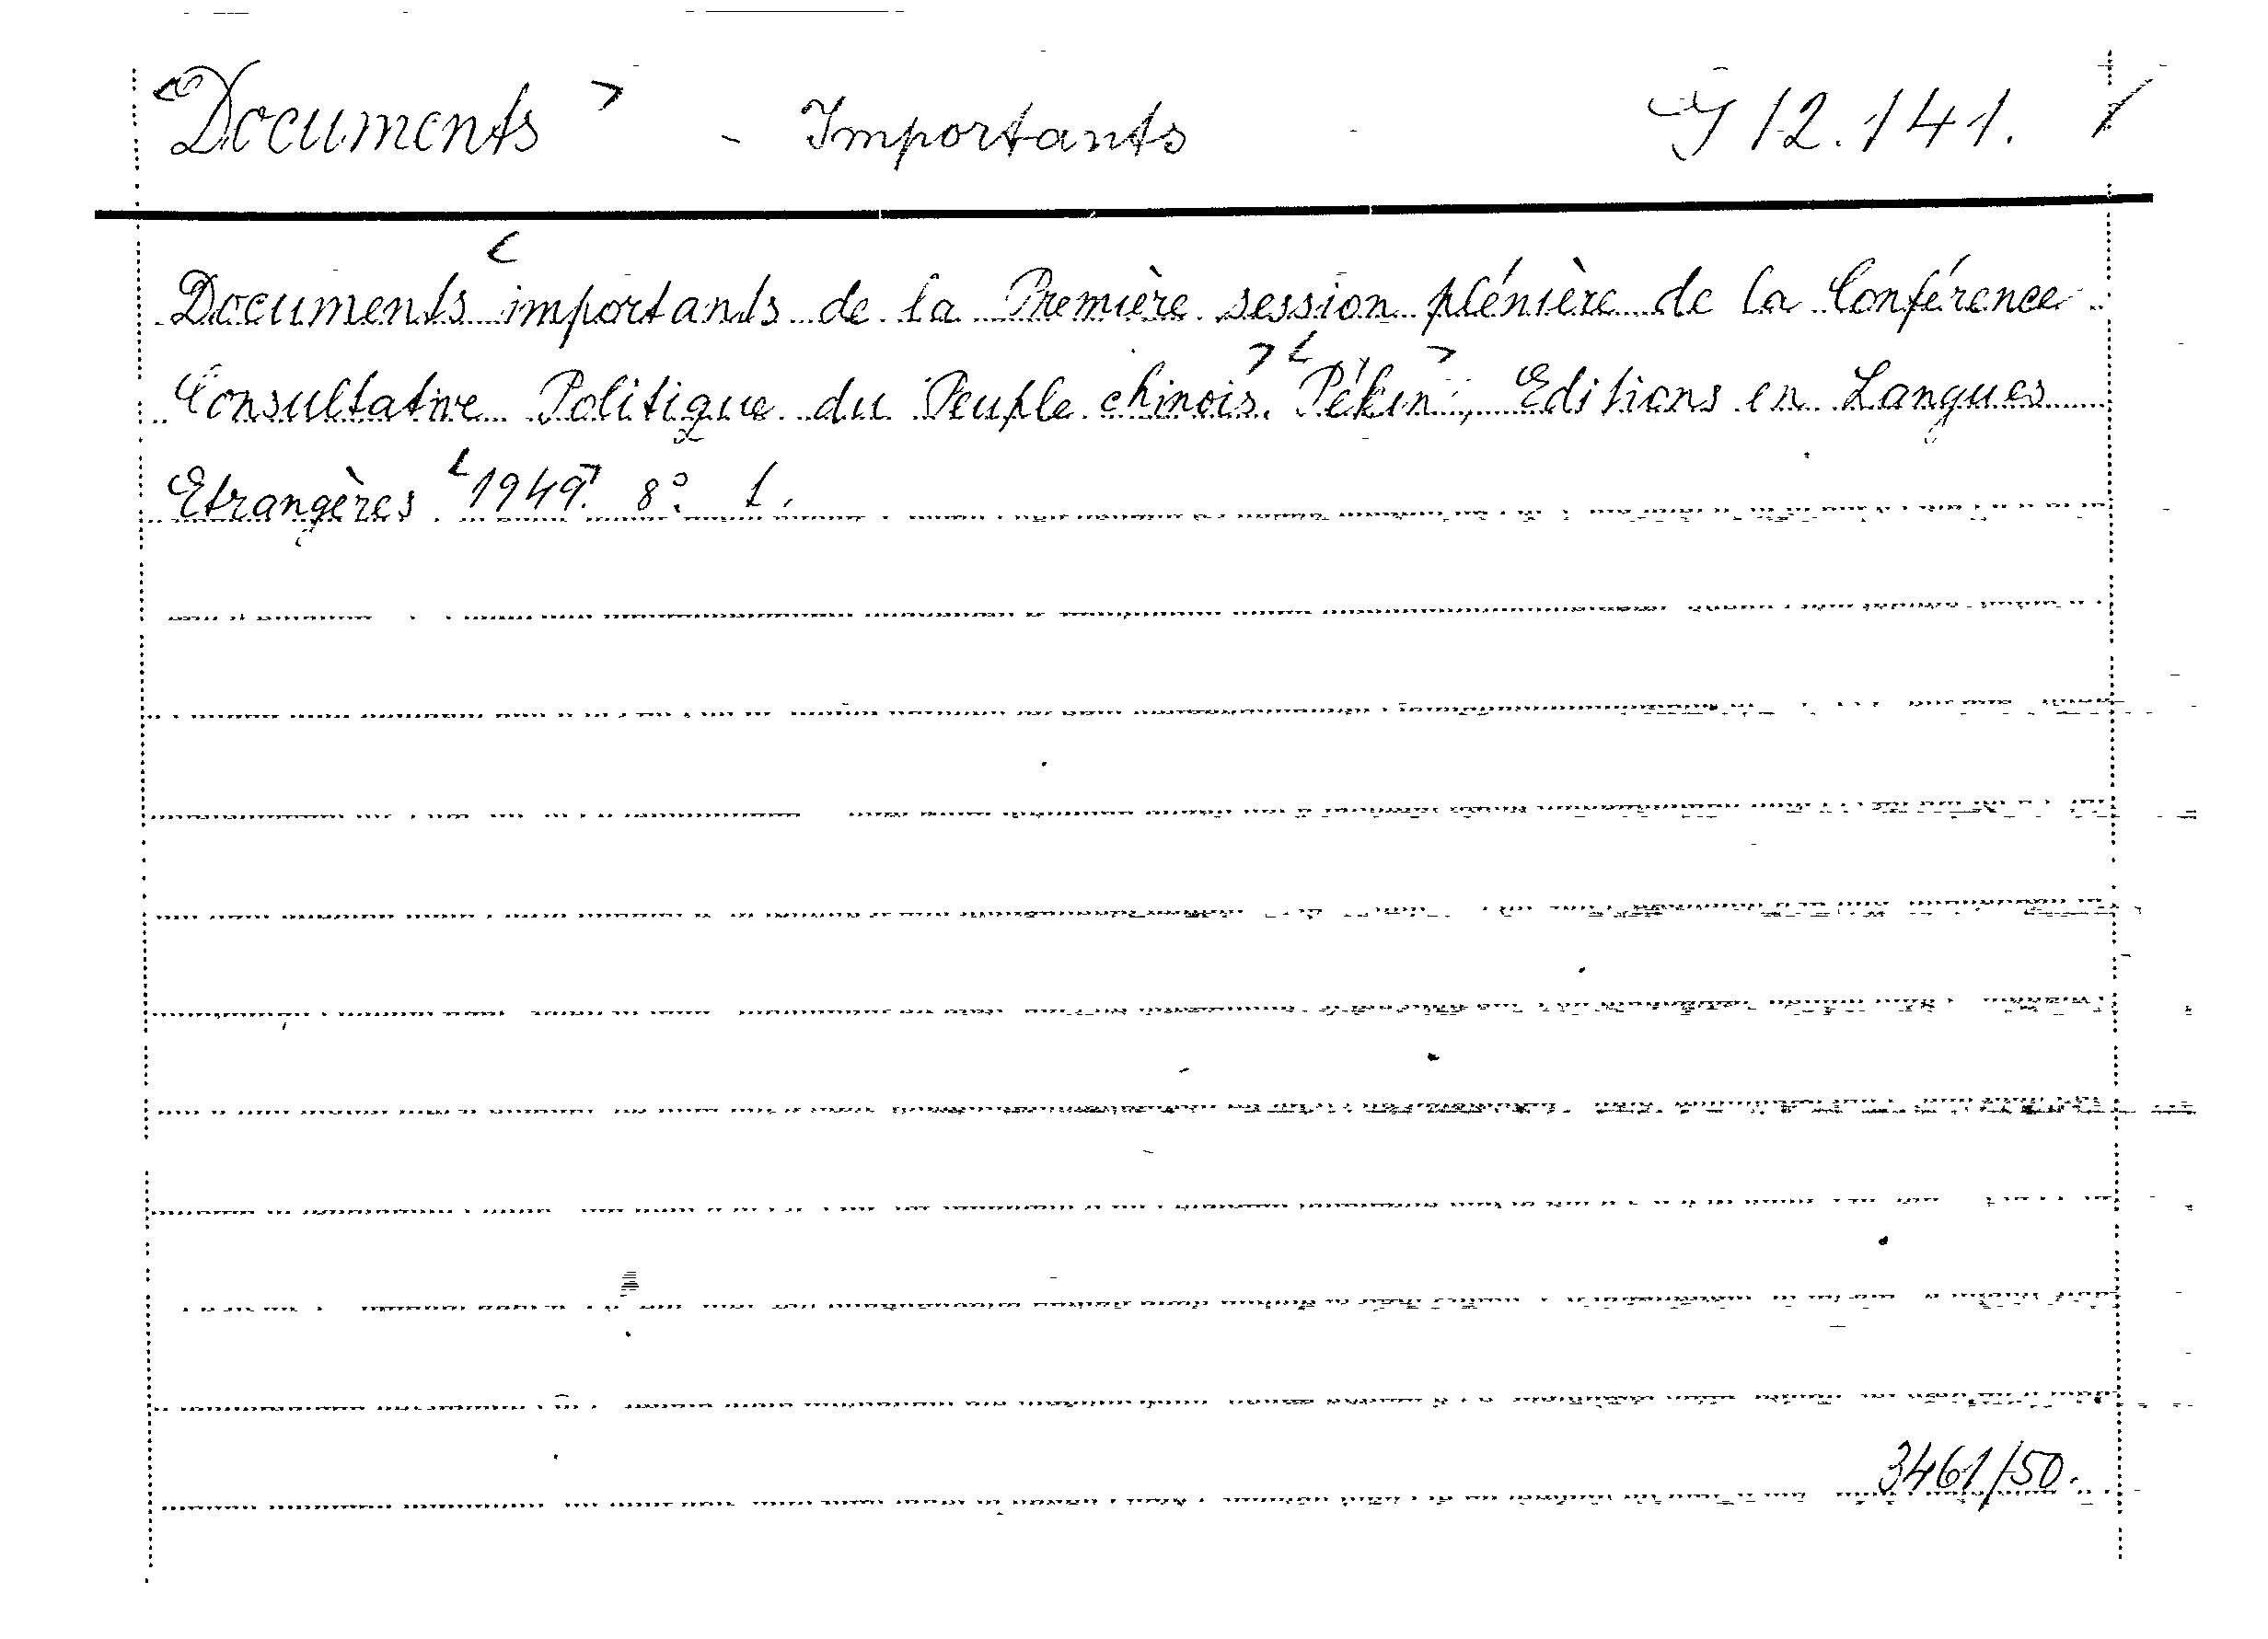 <Documents> - Importants J 12.141.
Documents <importants de la Première session plénière de la Conférence
Consultative Politique du Peuple chinois.> <Pékin>, Editions en Langues
Etrangères <1949>. 8°. 1.
3461/50.